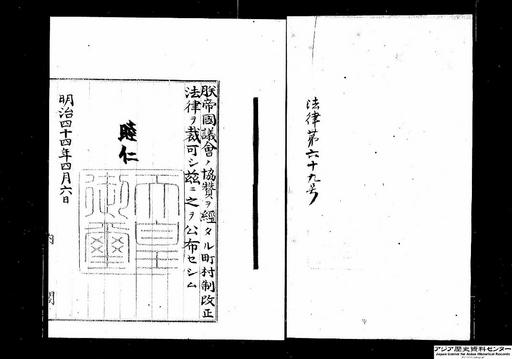 法律第六十九号
朕帝國議會ノ協賛ヲ經タル町村制改正
法律ヲ裁可シ茲ニ之ヲ公布セシム
睦仁
天皇
御璽
明治四十四年四月六日
内閣
アジア歴史資料センター
Japan Center for Asian Historical Records